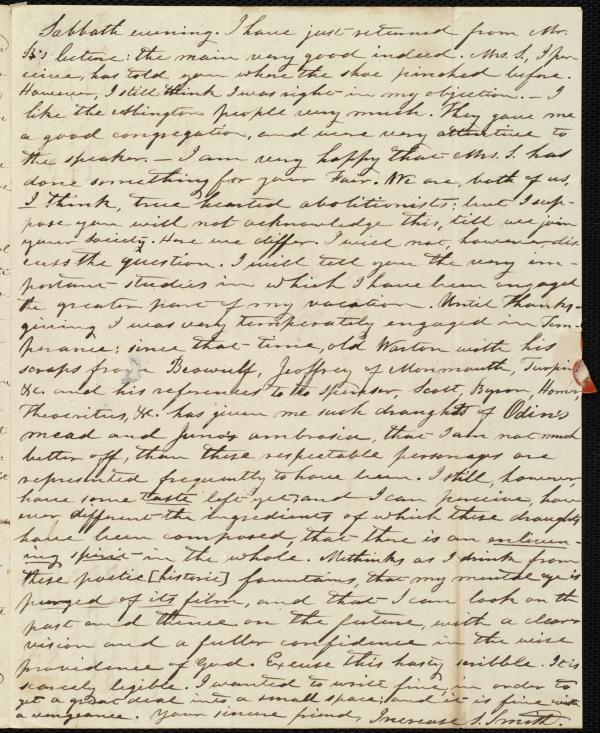 Sabbath evening. I have just returned from Mr.
B's lecture: the main very good indeed. Mrs. S., I per-
ceive, has told you where the shoe pinched before.
However, I still think I was right in my objection. — I
like the Abington people very much. They gave me
a good congregation, and were very attentive to
the speaker. — I am very happy that Mrs. S. has
done something for your Fair. We are, both of us,
I think, true hearted abolitionists; but I sup-
pose you will not acknowledge this, till we join
your society. Here we differ. I will not, however, dis-
cuss the question. I will tell you the very im-
portant studies in which I have been engaged
the greater part of my vacation. Until Thanks-
giving I was very temperately engaged in Tem-
perance; since that time, old Warton with his
scraps from Beowulf, Jeoffrey of Monmouth, Turpin
&c. and his references to Spenser, Scott, Byron, Homer,
Theocritus, &c. has given me such draughts of Odin's
mead and Juno's ambrosia, that I am not much
better off, than these respectable personages are
represented frequently to have been. I still, however
have some taste left yet, and I can perceive, how-
ever different the ingredients of which these draughts
have been composed, that there is an enliven-
ing spirit in the whole. Methinks as I drink from
these poetic [historic] fountains, that my mental eye is
purged of its film, and that I can look on the
past and thence on the future, with a clearer
vision and a fuller confidence in the wise
providence of God. Excuse this hasty scribble. It is
scarcely legible. I wanted to write fine, in order to
get a great deal into a small space, and it is fine with
a vengeance. Your sincere friend, Increase S. Smith.